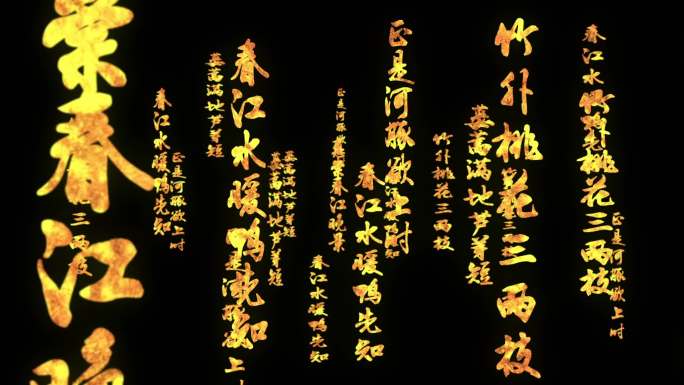 正是河豚欲上时
春江水
桃花三两枝
竹外桃花三两枝
蒌蒿满地芦芽短
竹外桃花三两枝
正是河豚欲上时
春江水暖鸭先知
正是河豚
春江晚景
春江水暖鸭先知
蒌蒿满地芦芽短
蒌蒿满地芦芽短
春江水暖鸭先知
上时
蒌蒿满地芦芽短
正是河豚欲上时
春江水暖鸭先知
崇春江晚
三两枝